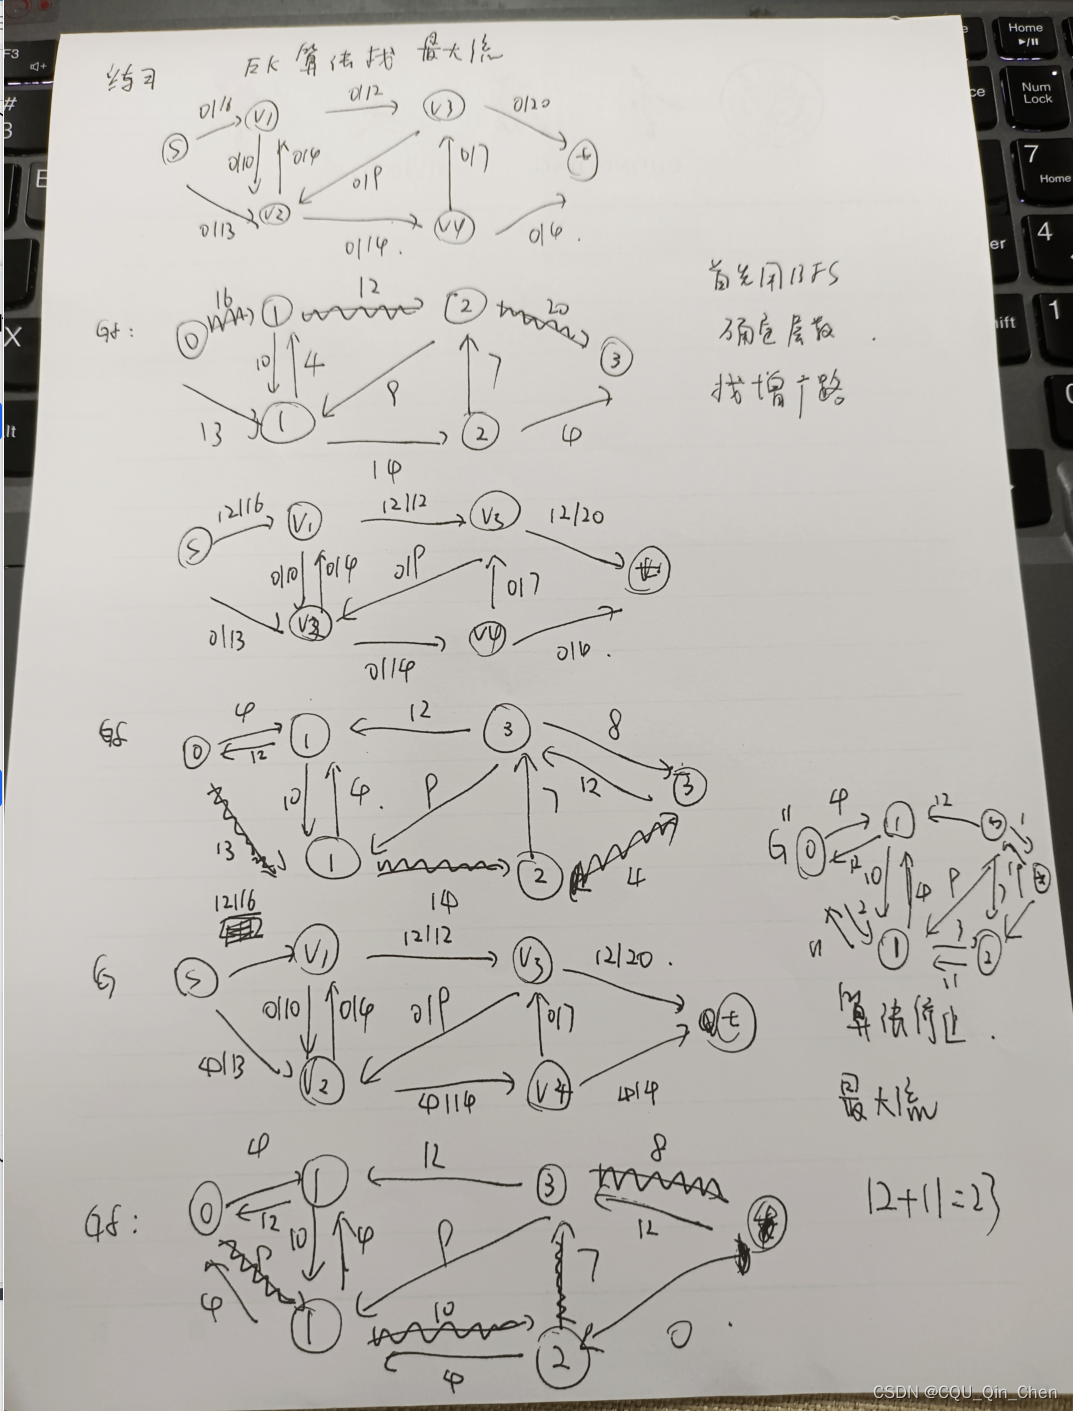 练习 EK 算法找 最大流
0/16 V1 0/12 V3 0/20
S 0/10 0/4 0/9 0/7 t
0/13 V2 0/14. V4 0/4.
首先用BFS
确定层数.
找增广路
Gf: 0 16 1 12 2 20 3
10 4 9 7
13 1 14 2 4
S 12/16 V1 12/12 V3 12/20 t
0/10 0/4 0/9 0/7
0/13 0/14 V4 0/4.
Gf 0 4 12 1 12 3 8 12 3
10 4. 9 7
13 1 14 2 4
G S 12/16 V1 12/12 V3 12/20. t
0/10 0/4 0/9 0/7
4/13 V2 4/14 V4 4/4
Gf: 0 4 12 1 12 3 8 12
10 4 9 7
9 4 1 10 4 2 0.
G" 0 4 12 1 12 3 1
10 4 9
2 11 1 3 11 2
算法停止.
最大流
12+11=23
CSDN @CQU_Qin_Chen